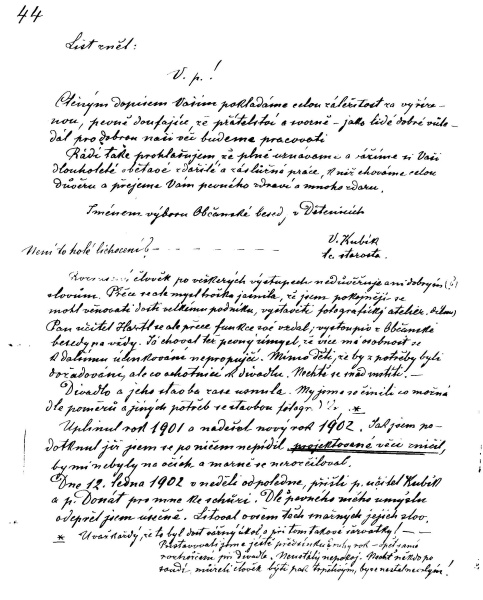 44
List zněl:
V. p.!
Ctěným dopisem Vaším pokládáme celou záležitost za vyříze-
nou, pevně doufajíce, že přátelství a svorně – jako lidé dobré vůle –
dál pro dobrou naši věc budeme pracovati
Rádi také prohlašujem že plně uznáváme a vážíme si Vaší
dlouholeté obětavé zdařilé a záslužné práce, k níž chováme celou
důvěru a přejeme Vám pevného zdraví a mnoho zdaru.
Jménem výboru Občanské besedy v Dětenicích
V. Kubík
t.č. starosta.
Není to holé lichocení? – – – – – –
člověk po veškerých výstupech nedůvěřuje ani dobrým (?)
slovům. Přece se ale mysl trochu zjasnila, že jsem pokojněji se
mohl věnovati dosti velkému podniku, vystavěti fotografický ateliér.
Pan učitel Hartl se ale přece funkce své vzdal; vystoupiv z Občanské
besedy na vždy. Já choval též pevný úmysl, že více má osobnost se
k dalšímu účinkování nepropůjčí. Mimo děti, že by z potřeby byli
dožadováni, ale co ochotníci k divadlu. Nechť se snad vrátí! –
Divadlo a jeho stavba zase usnula. My jsme se činili co možná
dle poměrů a jiných potřeb se stavbou fotogr. *
Uplinul rok 1901 a nadešel nový rok 1902. Jak jsem po-
dotknul již jsem se po ničem nepídil, projektované věci zničil,
by mi nebyly na očích a marně se nerozčiloval.
Dne 12. ledna 1902 v neděli odpoledne, přišli p. učitel Kubík
a p. Donát pro mne ke schůzi. Dle pevného mého úmyslu
odepřel jsem účelně. Litoval ovšem těch marných jejich slov.
* Uvaž každý, že to byl dost várný úkol, a při tom takové šarvátky! – –
Přistavovali jsme ještě předsíňku druhý rok – opět samé
rozhořčení při divadle. Neustálý nepokoj. Nechť někdo po
soudí, musel-li člověk býti pak trpělivým, by se nestal nevrlým!